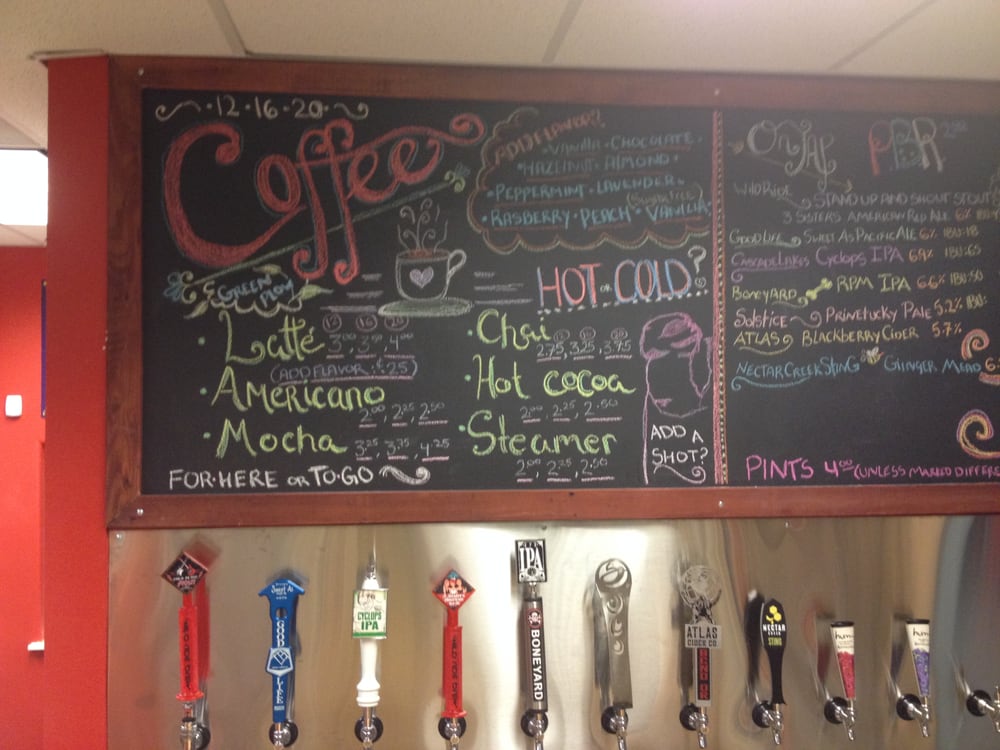 12·16·20
Coffee
ADD FLAVOR?
Vanilla · CHOCOLATE
HAZELNUT · ALMOND ·
· PEPPERMINT · LAVENDER ·
· RASBERRY · PEACH · VANILLA
HOT OR COLD?
· Latté 3.00, 3.50, 4.00
(ADD FLAVOR: $.25)
· Americano
2.00, 2.25, 2.50
· Mocha 3.25, 3.75, 4.25
FOR·HERE OR TO·GO
· Chai 12 16 20
2.75, 3.25, 3.75
· Hot cocoa
2.00, 2.25, 2.50
· Steamer
2.00, 2.25, 2.50
ADD A
SHOT?
On TAP PBR
Wild Ride STAND UP AND SHOUT STOUT
3 SISTERS AMERICAN RED ALE 6%
GOOD LIFE SWEET AS PACIFIC ALE 6% IBU:18
CASCADE LAKES Cyclops IPA IBU:65
BONEYARD RPM IPA 6.6% IBU:50
Solstice PRINETUCKY PALE 5.2% IBU:
ATLAS BLACKBERRY CIDER 5.7%
NECTAR CREEK STING GIINGER MEAD
PINTS 4.00 (UNLESS MARKED DIFFERE
Sweet As
GOOD
LIFE
CYCLOPS
IPA
IPA
BONEYARD
ATLAS
CIDER CO.
BEND OR
NECTAR
CREEK
STING
hum
hum